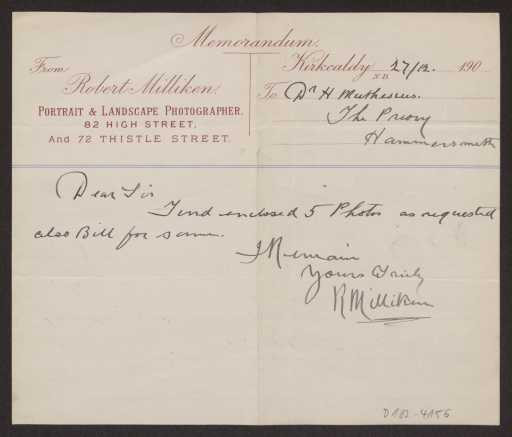 Memorandum.
From
Robert Milliken,
PORTRAIT & LANDSCAPE PHOTOGRAPHER.
82 HIGH STREET,
And 72 THISTLE STREET.
Kirkcaldy, N.B. 27/12. 190
To Dr H Muthesius.
The Priory
Hammersmith
Dear Sir
Find enclosed 5 Photos as requested
also Bill for same.
I Remain
Yours Truly
R Milliken
D 102-4156